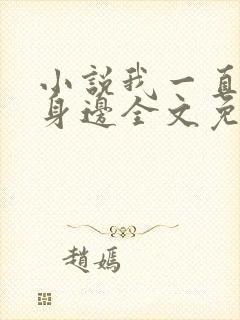 小說我一直
身邊全文免
趙媽